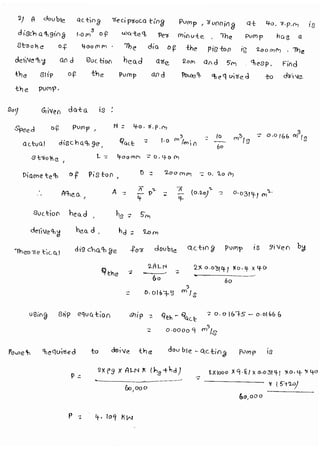 2) A double acting reciprocating pump, running at 40. r.p.m is
discharging 1.0 m³ of water per minute. The pump has a
Stroke of 400mm. The dia of the piston is 200mm. The
delivery and suction head are 20m and 5m. resp. Find
the slip of the pump and Power required to drive
the pump.
Sol) Given data is :
Speed of Pump, N = 40. r.p.m
actual discharge, Qact = 1.0 m³/min = 10/60 m³/s = 0.0166 m³/s
stroke, L = 400mm = 0.40m
Diameter of Piston, D = 200mm = 0.20m
∴ Area, A = π/4 D² = π/4 (0.20)² = 0.03141 m²
Suction head, hs = 5m
delivery head, hd = 20m
Theoretical discharge for double acting pump is given by
Qthe = 2ALN/60 = 2X 0.03141 X0.4 X 40/60
= 0.01675 m³/s
using slip equation slip = Qth - Qact = 0.01675 - 0.01666
= 0.00009 m³/s
Power required to drive the double-acting pump is
P = 2X ρg X ALN X (hs+hd)/60,000 = 2X1000 X9.81 X 0.03141 X0.4 X40 X (5+20)/60,000
P = 4.109 KW